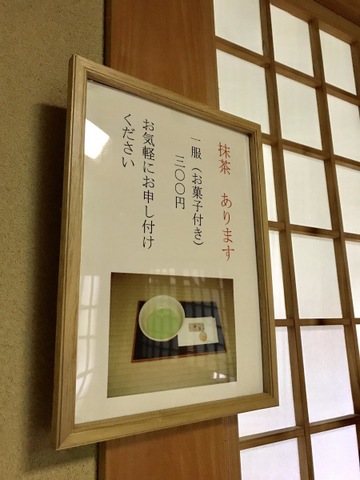 抹茶　あります
一服（お菓子付き）
三〇〇円
お気軽にお申し付け
ください